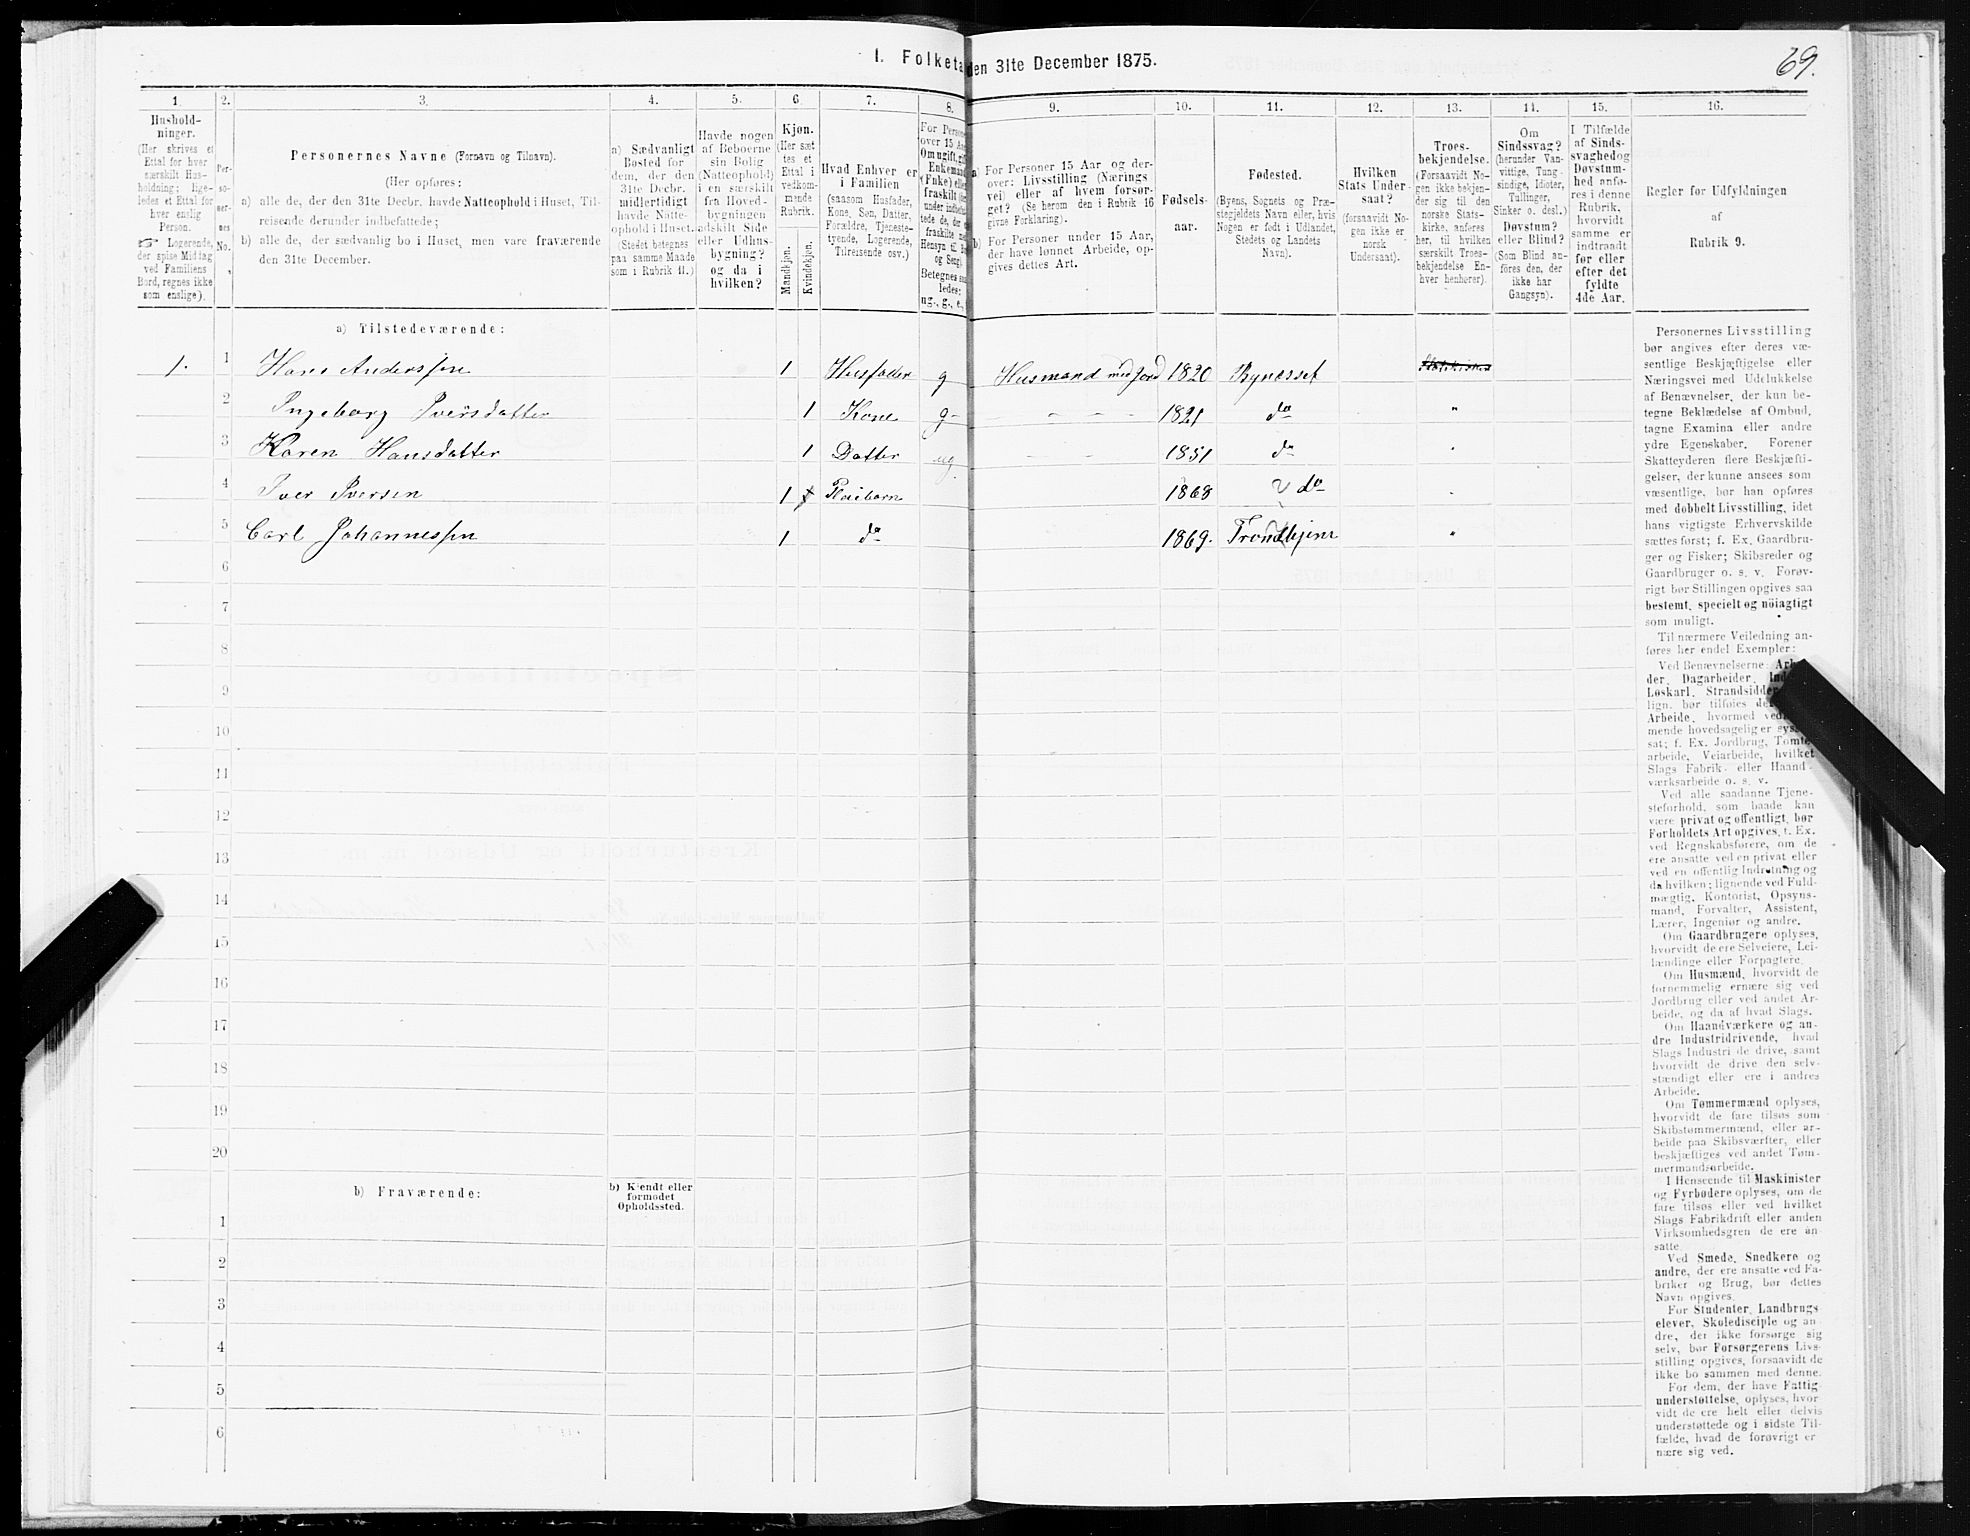 1. Folketa den 31te December 1875.
69.
1. 2. 3. 4. 5. 6. 7. 8. 9. 10. 11. 12. 13. 14. 15. 16.
Hushold-
ninger.
(Her skrives et
Ettal for hver
særskilt Hus-
holdning; lige-
ledes et Ettal for
hver enslig
Person.
☞ Logerende,
der spise Middag
ved Familiens
Bord, regnes ikke
som enslige).
Per-
so-
ner-
nes
No.
Personernes Navne (Fornavn og Tilnavn).
(Her opføres:
a) alle de, der den 31te Decbr. havde Natteophold i Huset, Til-
reisende derunder indbefattede;
b) alle de, der sædvanlig bo i Huset, men vare fraværende
den 31te December.
a) Sædvanligt
Bosted for
dem, der den
31te Decbr.
midlertidigt
havde Natte-
ophold i Huset.
(Stedet betegnes
paa samme Maade
som i Rubrik 11.)
Havde nogen
af Beboerne
sin Bolig
(Natteophold)
i en særskilt
fra Hoved-
bygningen
adskilt Side
eller Udhus-
bygning?
og da i
hvilken?
Kjøn.
(Her sæt
tes et
Ettal i
vedkom-
mende
Rubrik.
Mandkjøn.
Kvindekjøn.
Hvad Enhver er
i Familien
(saasom Husfader,
Kone, Søn, Datter,
Forældre, Tjeneste-
tyende, Logerende,
Tilreisende osv.)
For Person
over 15 Aar
Om ugift, gift
Enkemand
(Enke) eller
fraskilt
Betegnes saa
ledes:
ug., g., e.,
a) For Personer 15 Aar og der-
over: Livsstilling (Nærings
vei) eller af hvem forsør-
get? (Se herom den i Rubrik 16
givne Forklaring).
b) For Personer under 15 Aar,
der have lønnet Arbeide, op-
gives dettes Art.
Fødsels-
aar.
Fødested.
(Byens, Sognets og Præ-
stegjeldets Navn eller, hvis
Nogen er født i Udlandet,
Stedets og Landets
Navn).
Hvilken
Stats Under-
saat?
(forsaavidt No-
gen ikke er
norsk
Undersaat).
Troes-
bekjendelse.
(Forsaavidt No-
gen ikke bekjen-
der sig til den
norske Stats-
kirke, anføres
her, til hvilken
særskilt Troes-
bekjendelse En-
hver henhører).
Om
Sindssvag?
(herunder Van-
vittige, Tung-
sindige, Idioter,
Tullinger,
Sinker o. desl.)
Døvstum?
eller Blind?
(Som Blind an-
føres den, der
ikke har
Gangsyn).
I Tilfælde
af Sinds-
svaghed og
Døvstum-
hed anfø-
res i denne
Rubrik,
hvorvidt
samme er
indtraadt
før eller
efter det
fyldte
4de Aar.
Regler før Udfyldningen
af
Rubrik 9.
a) Tilstedeværende:
1. 1 Hans Anderssen 1 Husfader g Husmand med Jord 1820 Bynesset
2 Ingeborg Iversdatter 1 Kone g - - - 1821 do "
3 Karen Hansdatter 1 Datter ug - - 1851 do "
4 Iver Iversen 1 Pleiebarn 1868 do "
5 Carl Johannessen 1 do 1869. Trondhjem "
6
7
8
9
10
11
12
13
14
15
16
17
18
19
20
b) Fraværende:
b) Kjendt eller
formodet
Opholdssted.
1
2
3
4
5
6
Personernes Livsstilling
bør angives efter deres væ-
sentlige Beskjæftigelse eller
Næringsvei med Udelukkelse
af Benævnelser, der kun be-
tegne Beklædelse af Ombud,
tagne Examina eller andre
ydre Egenskaber. Forener
Skatteyderen flere Beskjæfti-
gelser, der kunne ansees som
væsentlige, bør han opføres
med dobbelt Livsstilling, idet
hans vigtigste Erhvervskilde
sættes først; f. Ex. Gaardbru-
ger og Fisker; Skibsreder og
Gaardbruger o. s. v. Forøv-
rigt bør Stillingen opgives saa
bestemt, specielt og nöiagtigt
som muligt.
Til nærmere Veiledning an-
føres her endel Exempler:
Ved Benævnelserne:
der, Dagarbeider,
Løskarl, Strandsidder
lign. bør tilføies
Arbeide, hvormed
mende hovedsagelig er
sat; f. Ex. Jordbrug, Tomte-
arbeide, Veiarbeide, hvilket
Slags Fabrik- eller Haand-
værksarbeide o. s. v.
Ved alle saadanne Tjene-
steforhold, som baade kan
være privat og offentligt, bør
Forholdets Art opgives, t. Ex.
ved Regnskabsførere, om de
ere ansatte ved en privat eller
ved en offentlig Indretning og
da hvilken; lignende ved Fuld-
mægtig, Kontorist, Opsyns-
mand, Forvalter, Assistent,
Lærer, Ingeniør og andre.
Om Gaardbrugere oplyses,
hvorvidt de ere Selveiere, Lei-
lændinge eller Forpagtere.
Om Husmænd, hvorvidt de
fornemmelig ernære sig ved
Jordbrug eller ved andet Ar-
beide, og da af hvad Slags.
Om Haandværkere og an-
dre Industridrivende, hvad
Slags Industri de drive, samt
hvorvidt de drive den selv-
stændigt eller ere i andres
Arbeide.
Om Tømmermænd oplyses,
hvorvidt de fare tilsøs som
Skibstømmermænd, eller ar-
beide paa Skibsværfter, eller
beskjæftiges ved andet Tøm-
mermandsarbeide.
I Henseende til Maskinister
og Fyrbødere oplyses, om de
fare tilsøs eller ved hvilket
Slags Fabrikdrift eller anden
Virksomhedsgren de ere an-
satte.
Ved Smede, Snedkere og
andre, der ere ansatte ved Fa-
briker og Brug, bør dettes
Navn opgives.
For Studenter, Landbrugs
elever, Skoledisciple og an-
dre, der ikke forsørge sig
selv, bør Forsørgerens Livs-
stilling opgives, forsaavidt de
ikke bo sammen med denne.
For dem, der have Fattig-
understøttelse, oplyses, hvor-
vidt de ere helt eller delvis
understøttede og i sidste Til-
fælde, hvad de forøvrigt er
nære sig ved.